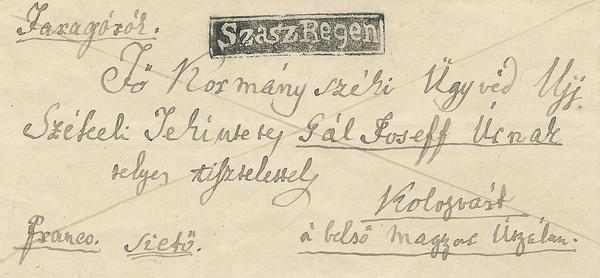 Faragóról.
SzaszRegen
Fő Kormány széki Ügyvéd Ujj
Székeli Tekintetes Gál Joseff Úrnak
teljes tisztelettel
Kolosvárt
franco. siető.
à belső magyar Úczában.